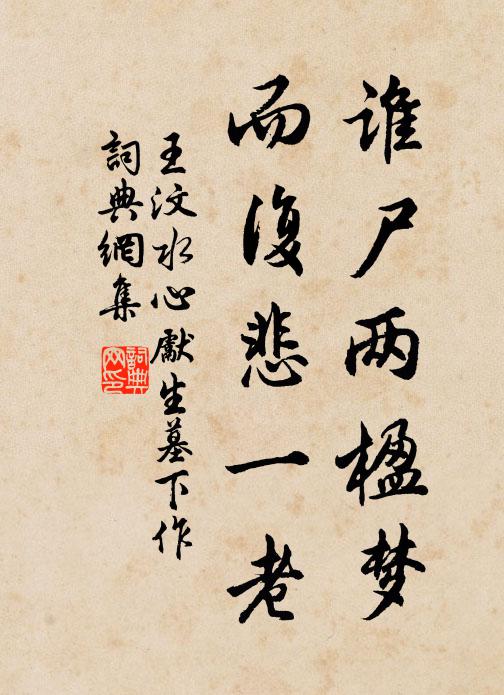 谁尸两楹梦
而復悲一老
王汶水心獻生墓下作
詞典網集
詞典網印